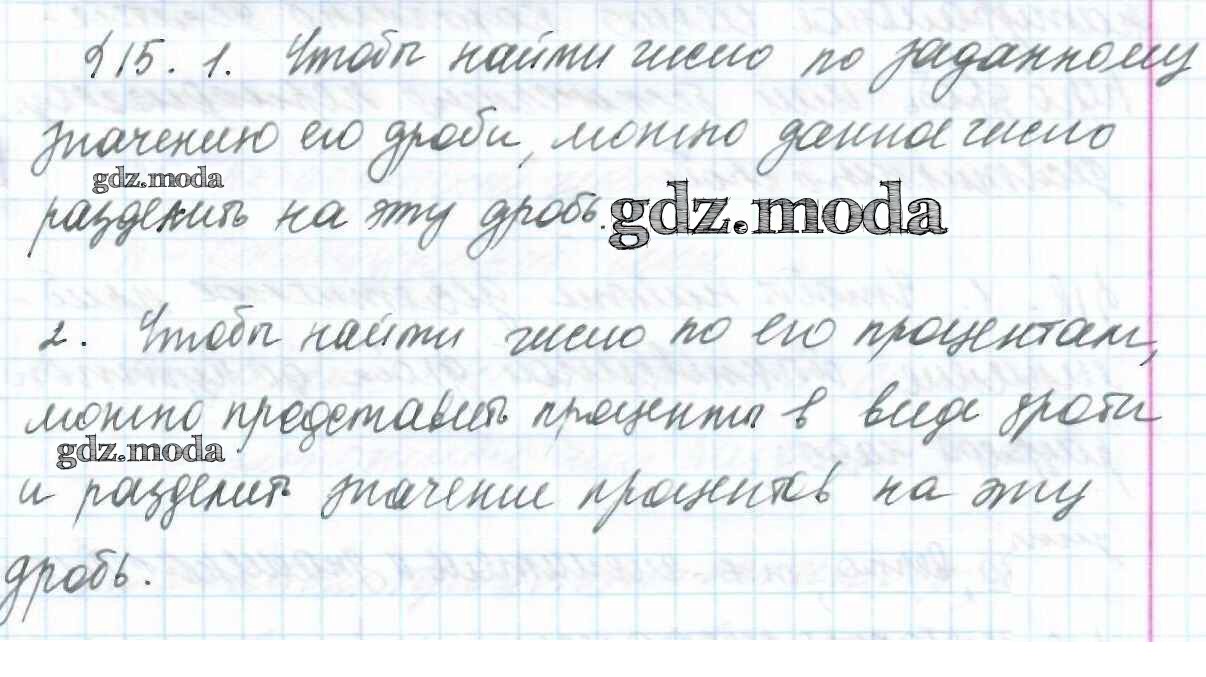 §15. 1. Чтобы найти число по заданному
значению его дроби, можно данное число
gdz.moda
разделить на эту дробь. gdz.moda
2. Чтобы найти число по его процентам,
можно представить проценты в виде дроби
gdz.moda
и разделить значение процентов на эту
дробь.